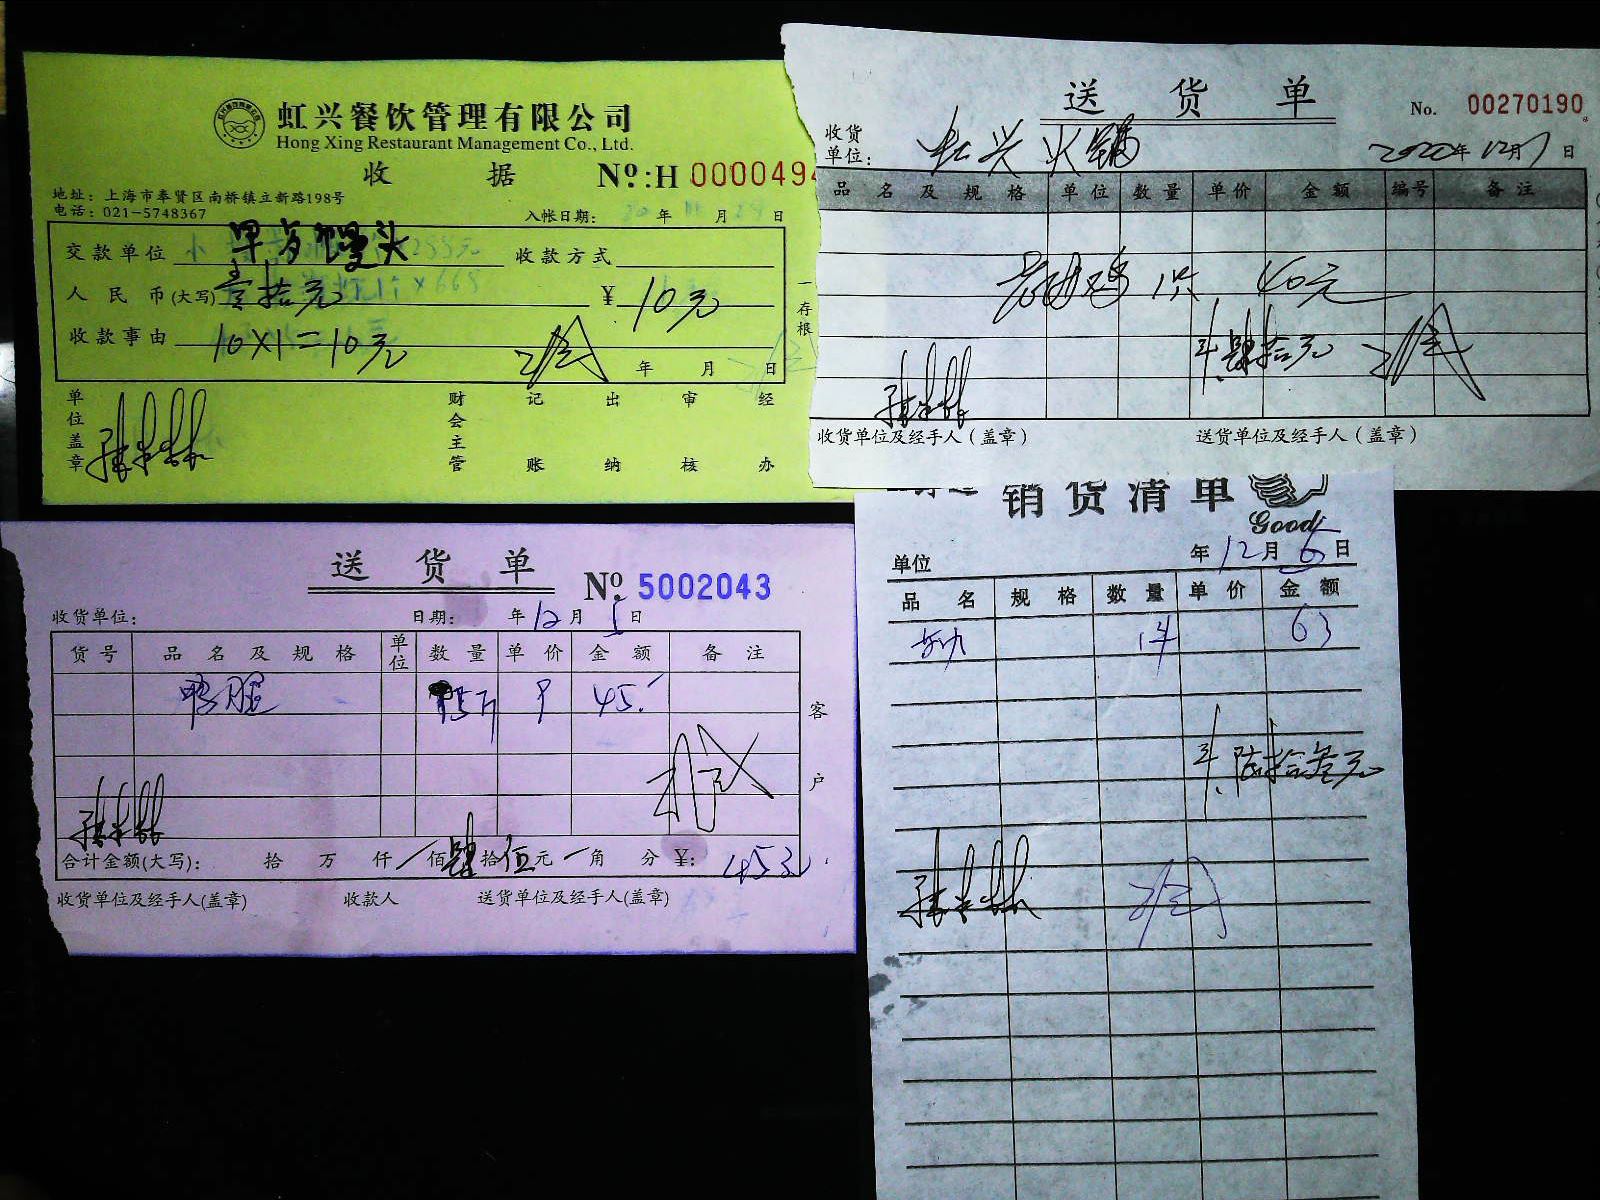 虹兴餐饮管理有限公司
Hong Xing Restaurant Management Co., Ltd.
收 据 No:H 0000494
地址：上海市奉贤区南桥镇立新路198号
电话：021-5748367
入帐日期： 年 月 日
交款单位 馒头 收款方式
人民币(大写) 壹拾元 ¥ 10元
收款事由 10X1=10元
年 月 日
一存根
单位盖章 财会主管 记账 出纳 审核 经办
送 货 单 No. 00270190
收货单位： 虹兴火锅 2020年12月7日
品名及规格 单位 数量 单价 金额 编号 备注
鸡 1只 40元
肆拾元
收货单位及经手人（盖章） 送货单位及经手人（盖章）
送 货 单 No. 5002043
收货单位： 日期： 年12月5日
货号 品名及规格 单位 数量 单价 金额 备注
鸭腿 5斤 9 45.
客户
合计金额(大写)： 拾 万 仟 佰肆拾伍元 角 分 ¥： 45元
收货单位及经手人(盖章) 收款人 送货单位及经手人(盖章)
销货清单
Good
单位 年12月6日
品名 规格 数量 单价 金额
14 63
陆拾叁元